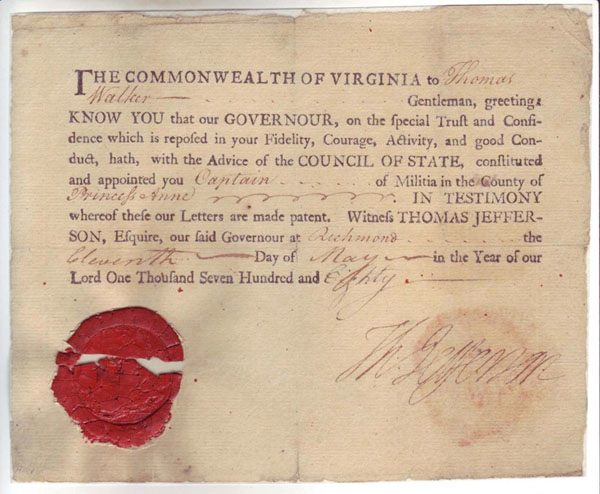 THE COMMONWEALTH OF VIRGINIA to Thomas
Walker Gentleman, greeting:
KNOW YOU that our GOVERNOUR, on the special Trust and Confi-
dence which is reposed in your Fidelity, Courage, Activity, and good Con-
duct, hath, with the Advice of the COUNCIL OF STATE, constituted
and appointed you Captain of Militia in the County of
Princess Anne IN TESTIMONY
whereof these our Letters are made patent. Witness THOMAS JEFFER-
SON, Esquire, our said Governour at Richmond the
Eleventh Day of May in the Year of our
Lord One Thousand Seven Hundred and Eighty
Th. Jefferson